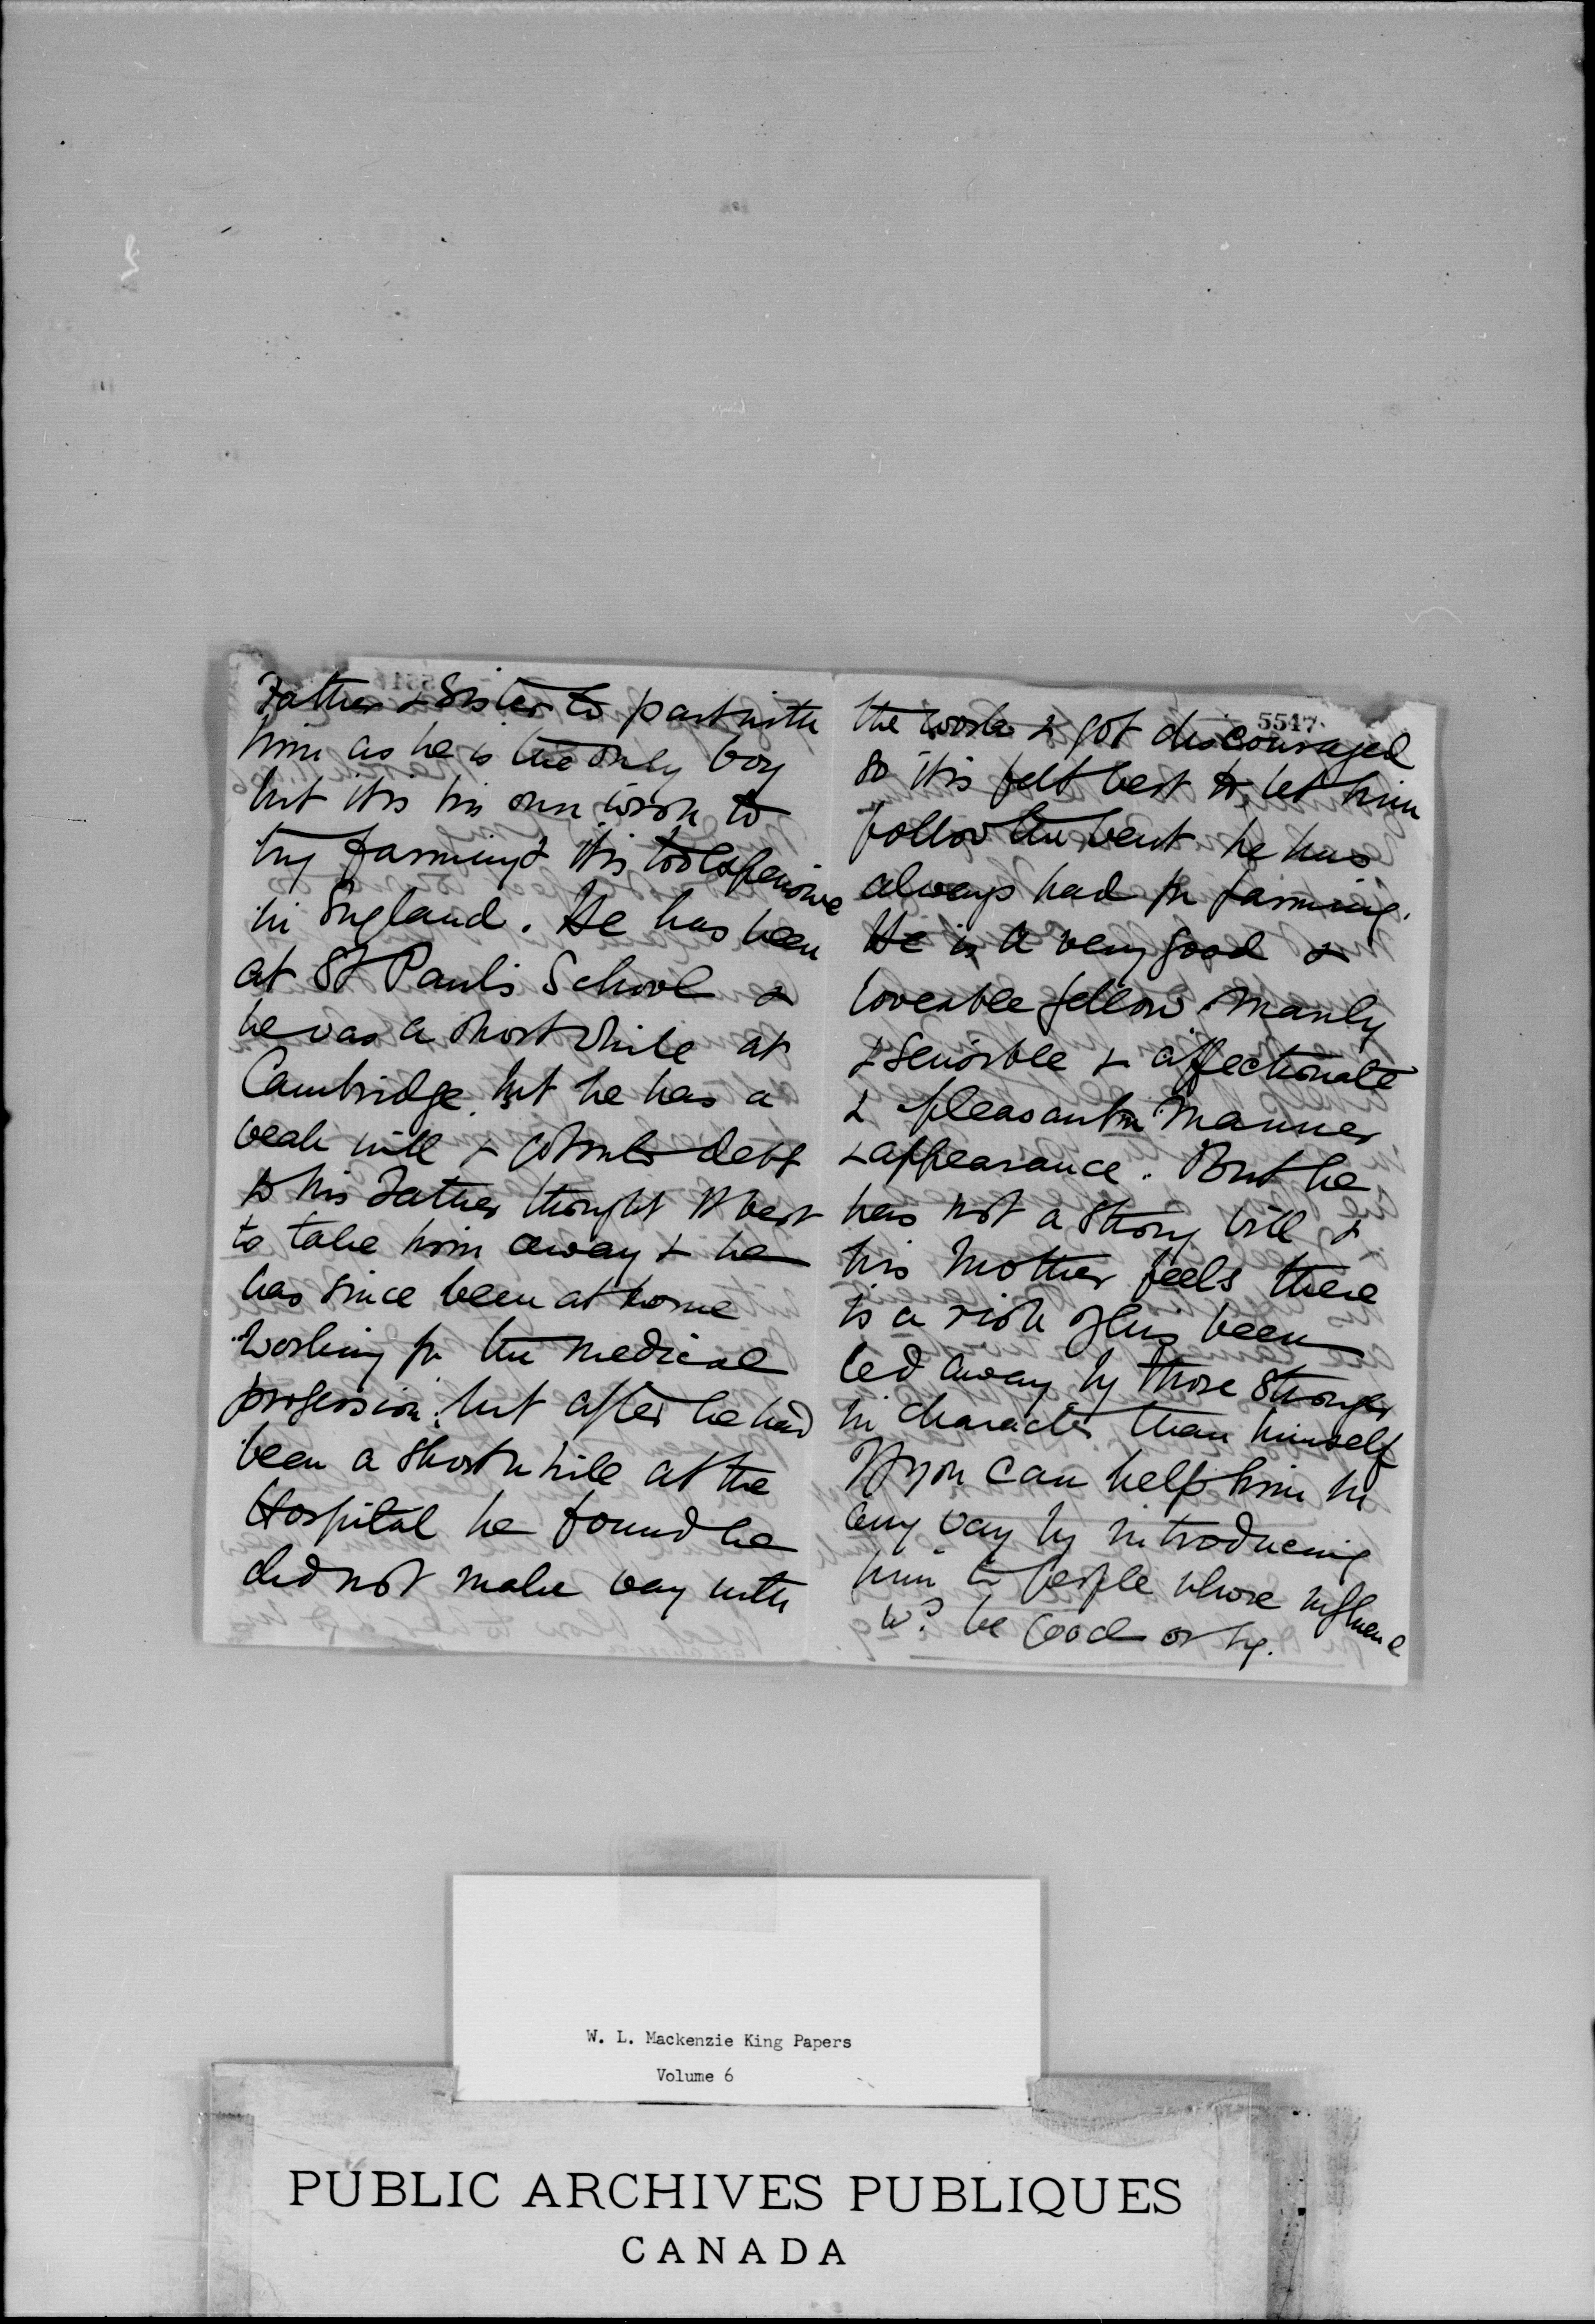 Father & Sister to part with
him as he is the only boy
but it is his own wish to
try farming & it is too expensive
in England. He has been
at St Paul's School &
he was a short while at
Cambridge, but he has a
weak will & got into debt
so his Father thought it best
to take him away & he
has since been at home
working for the medical
profession, but after he had
been a short while at the
Hospital he found he
did not make way with
5517
the work & got discouraged
so it is felt best to let him
follow the bent he has
always had for farming.
He is a very good &
loveable fellow. Manly
& sensible & affectionate
& pleasant in manner
& appearance. But he
has not a strong will &
his Mother feels there
is a risk of his been
led away by those stronger
in character than himself
If you can help him in
any way by introducing
him to people whose influence
wd. be good
W. L. Mackenzie King Papers
Volume 6
PUBLIC ARCHIVES PUBLIQUES
CANADA